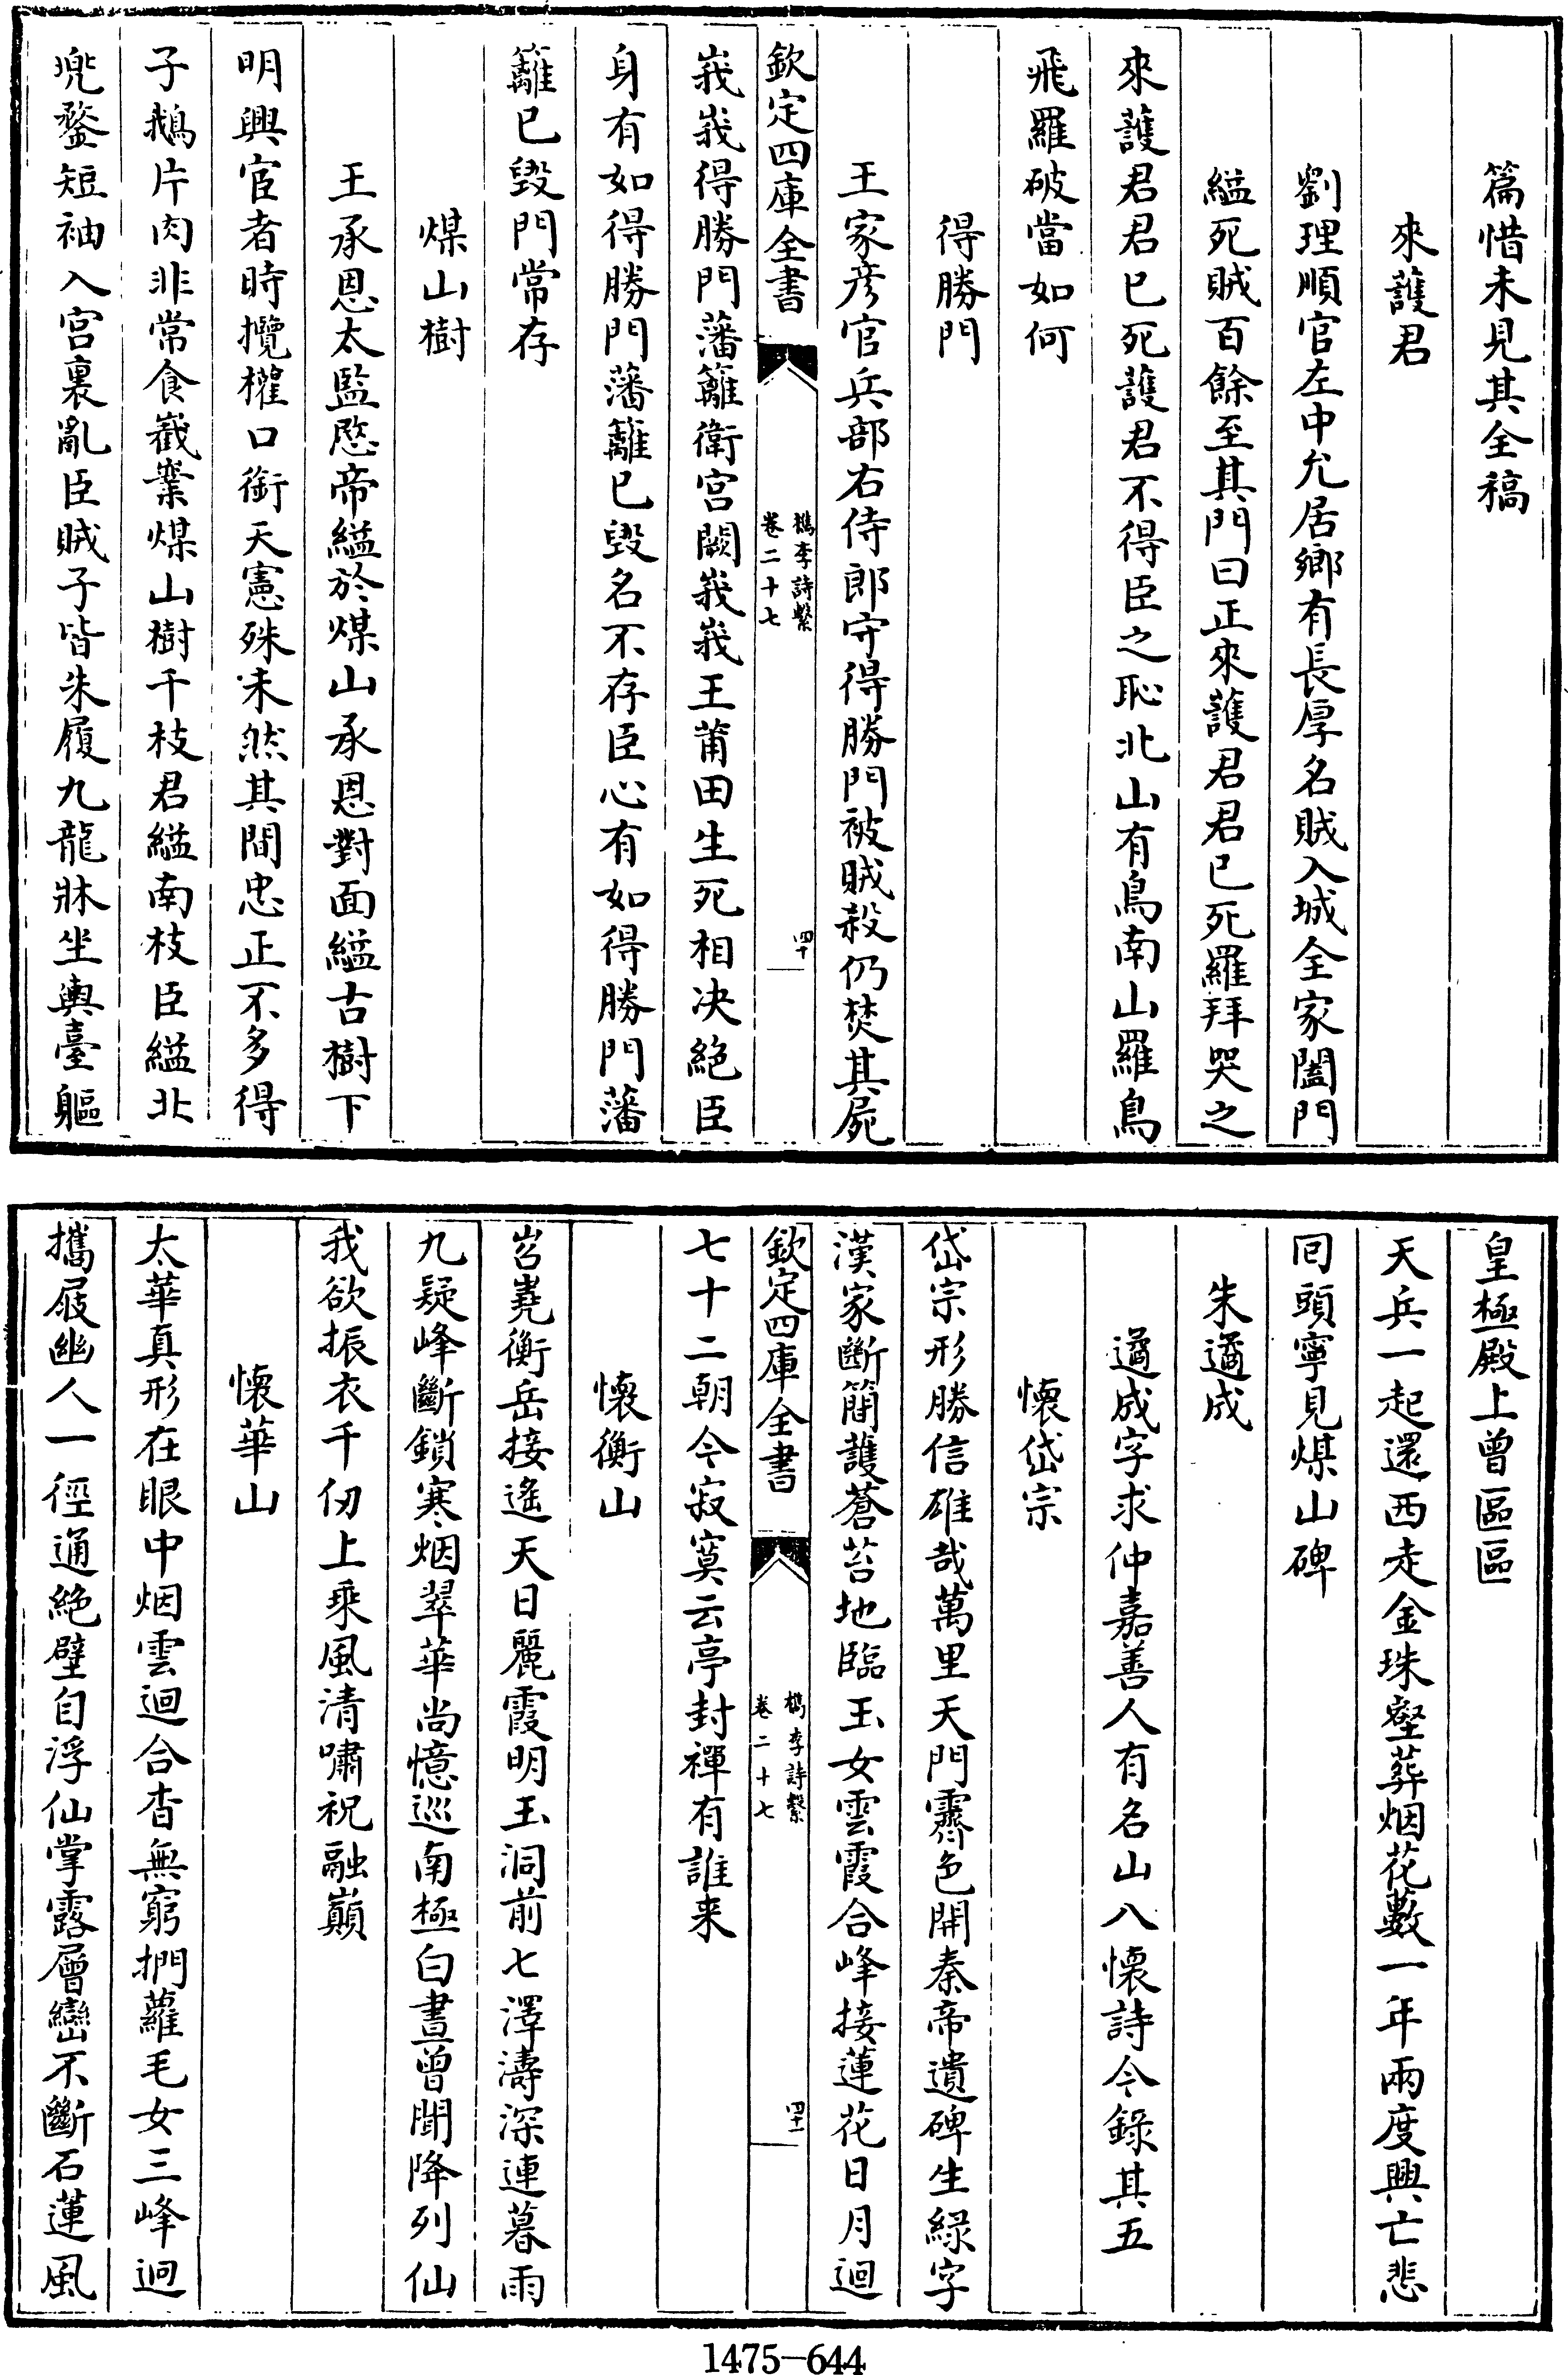 篇惜未見其全稿
來護君
劉理順官左中允居鄉有長厚名賊入城全家闔門
縊死賊百餘至其門曰正來護君君已死羅拜哭之
來護君君已死護君不得臣之恥北山有鳥南山羅鳥
飛羅破當如何
得勝門
王家彥官兵部右侍郎守得勝門被賊殺仍焚其屍
欽定四庫全書
檇李詩繫
卷二十七
四十
峩峩得勝門藩籬衛宮闕峩峩王莆田生死相决絕臣
身有如得勝門藩籬已毀名不存臣心有如得勝門藩
籬已毀門常存
煤山樹
王承恩太監愍帝縊於煤山承恩對面縊古樹下
明興宦者時攬權口銜天憲殊未然其間忠正不多得
子鵝片肉非常食嶻嶪煤山樹千枝君縊南枝臣縊北
兠鍪短袖入宮裏亂臣賊子皆朱履九龍牀坐輿臺軀
皇極殿上曾區區
天兵一起還西走金珠壑葬烟花藪一年兩度興亡悲
囘頭寧見煤山碑
朱遹成
遹成字求仲嘉善人有名山八懷詩今錄其五
懷岱宗
岱宗形勝信雄哉萬里天門霽色開秦帝遺碑生綠字
漢家斷簡護蒼苔地臨玉女雲霞合峰接蓮花日月迴
欽定四庫全書
檇李詩繫
卷二十七
四十一
七十二朝今寂寞云亭封禪有誰来
懷衡山
岧嶤衡岳接遙天日麗霞明玉洞前七澤濤深連暮雨
九疑峰斷鎖寒烟翠華尚憶巡南極白晝曾聞降列仙
我欲振衣千仞上乘風清嘯祝融巔
懷華山
太華真形在眼中烟雲迴合杳無窮捫蘿毛女三峰迥
攜屐幽人一徑通絶壁自浮仙掌露層巒不斷石蓮風
1475-644